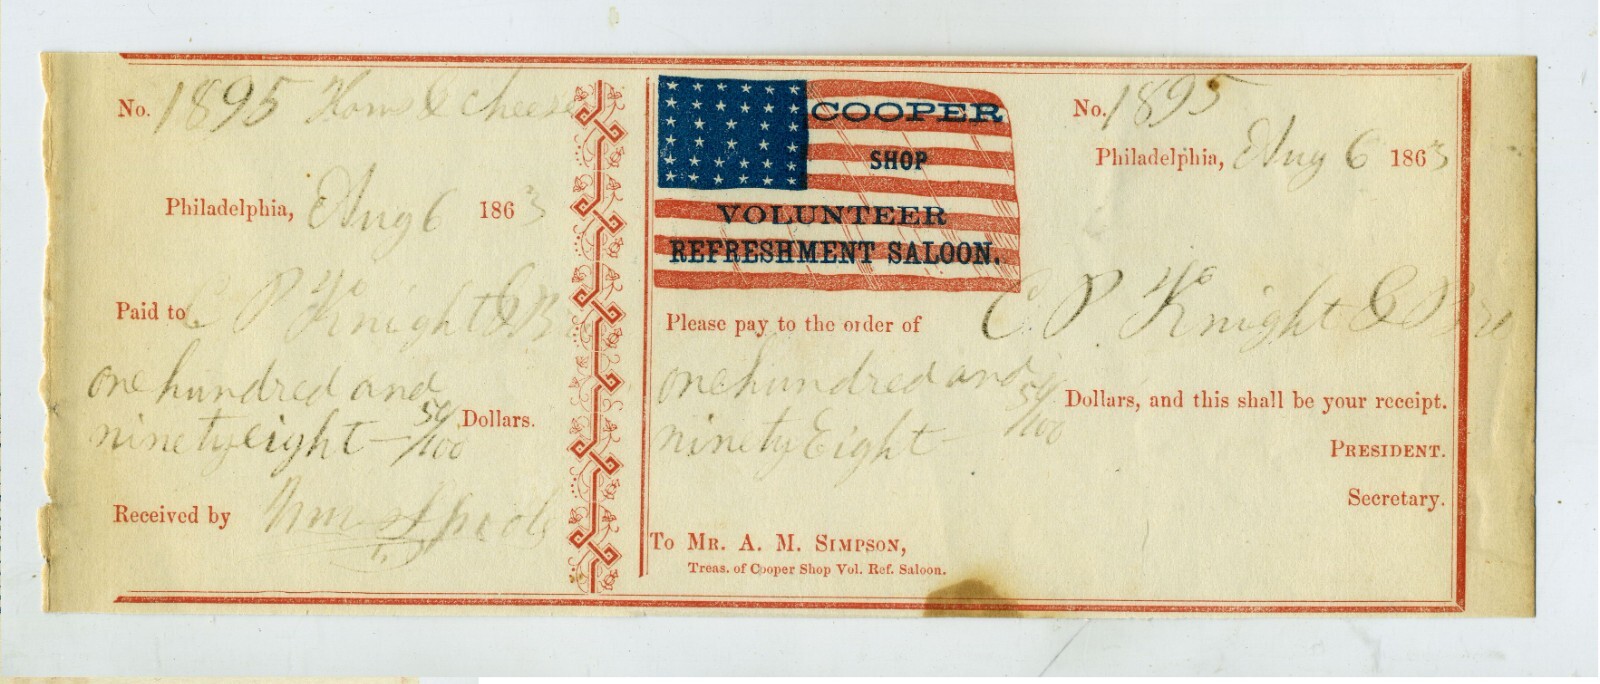 No. 1895 Hams & cheese
Philadelphia, Aug 6 1863
Paid to C P Knight & B
one hundred and
ninety eight — 54/100 Dollars.
Received by Wm
COOPER
SHOP
VOLUNTEER
REFRESHMENT SALOON.
No. 1895
Philadelphia, Aug 6 1863
Please pay to the order of C. P. Knight & Bro
one hundred and
ninety Eight — 54/100 Dollars, and this shall be your receipt.
PRESIDENT.
Secretary.
To MR. A. M. SIMPSON,
Treas. of Cooper Shop Vol. Ref. Saloon.